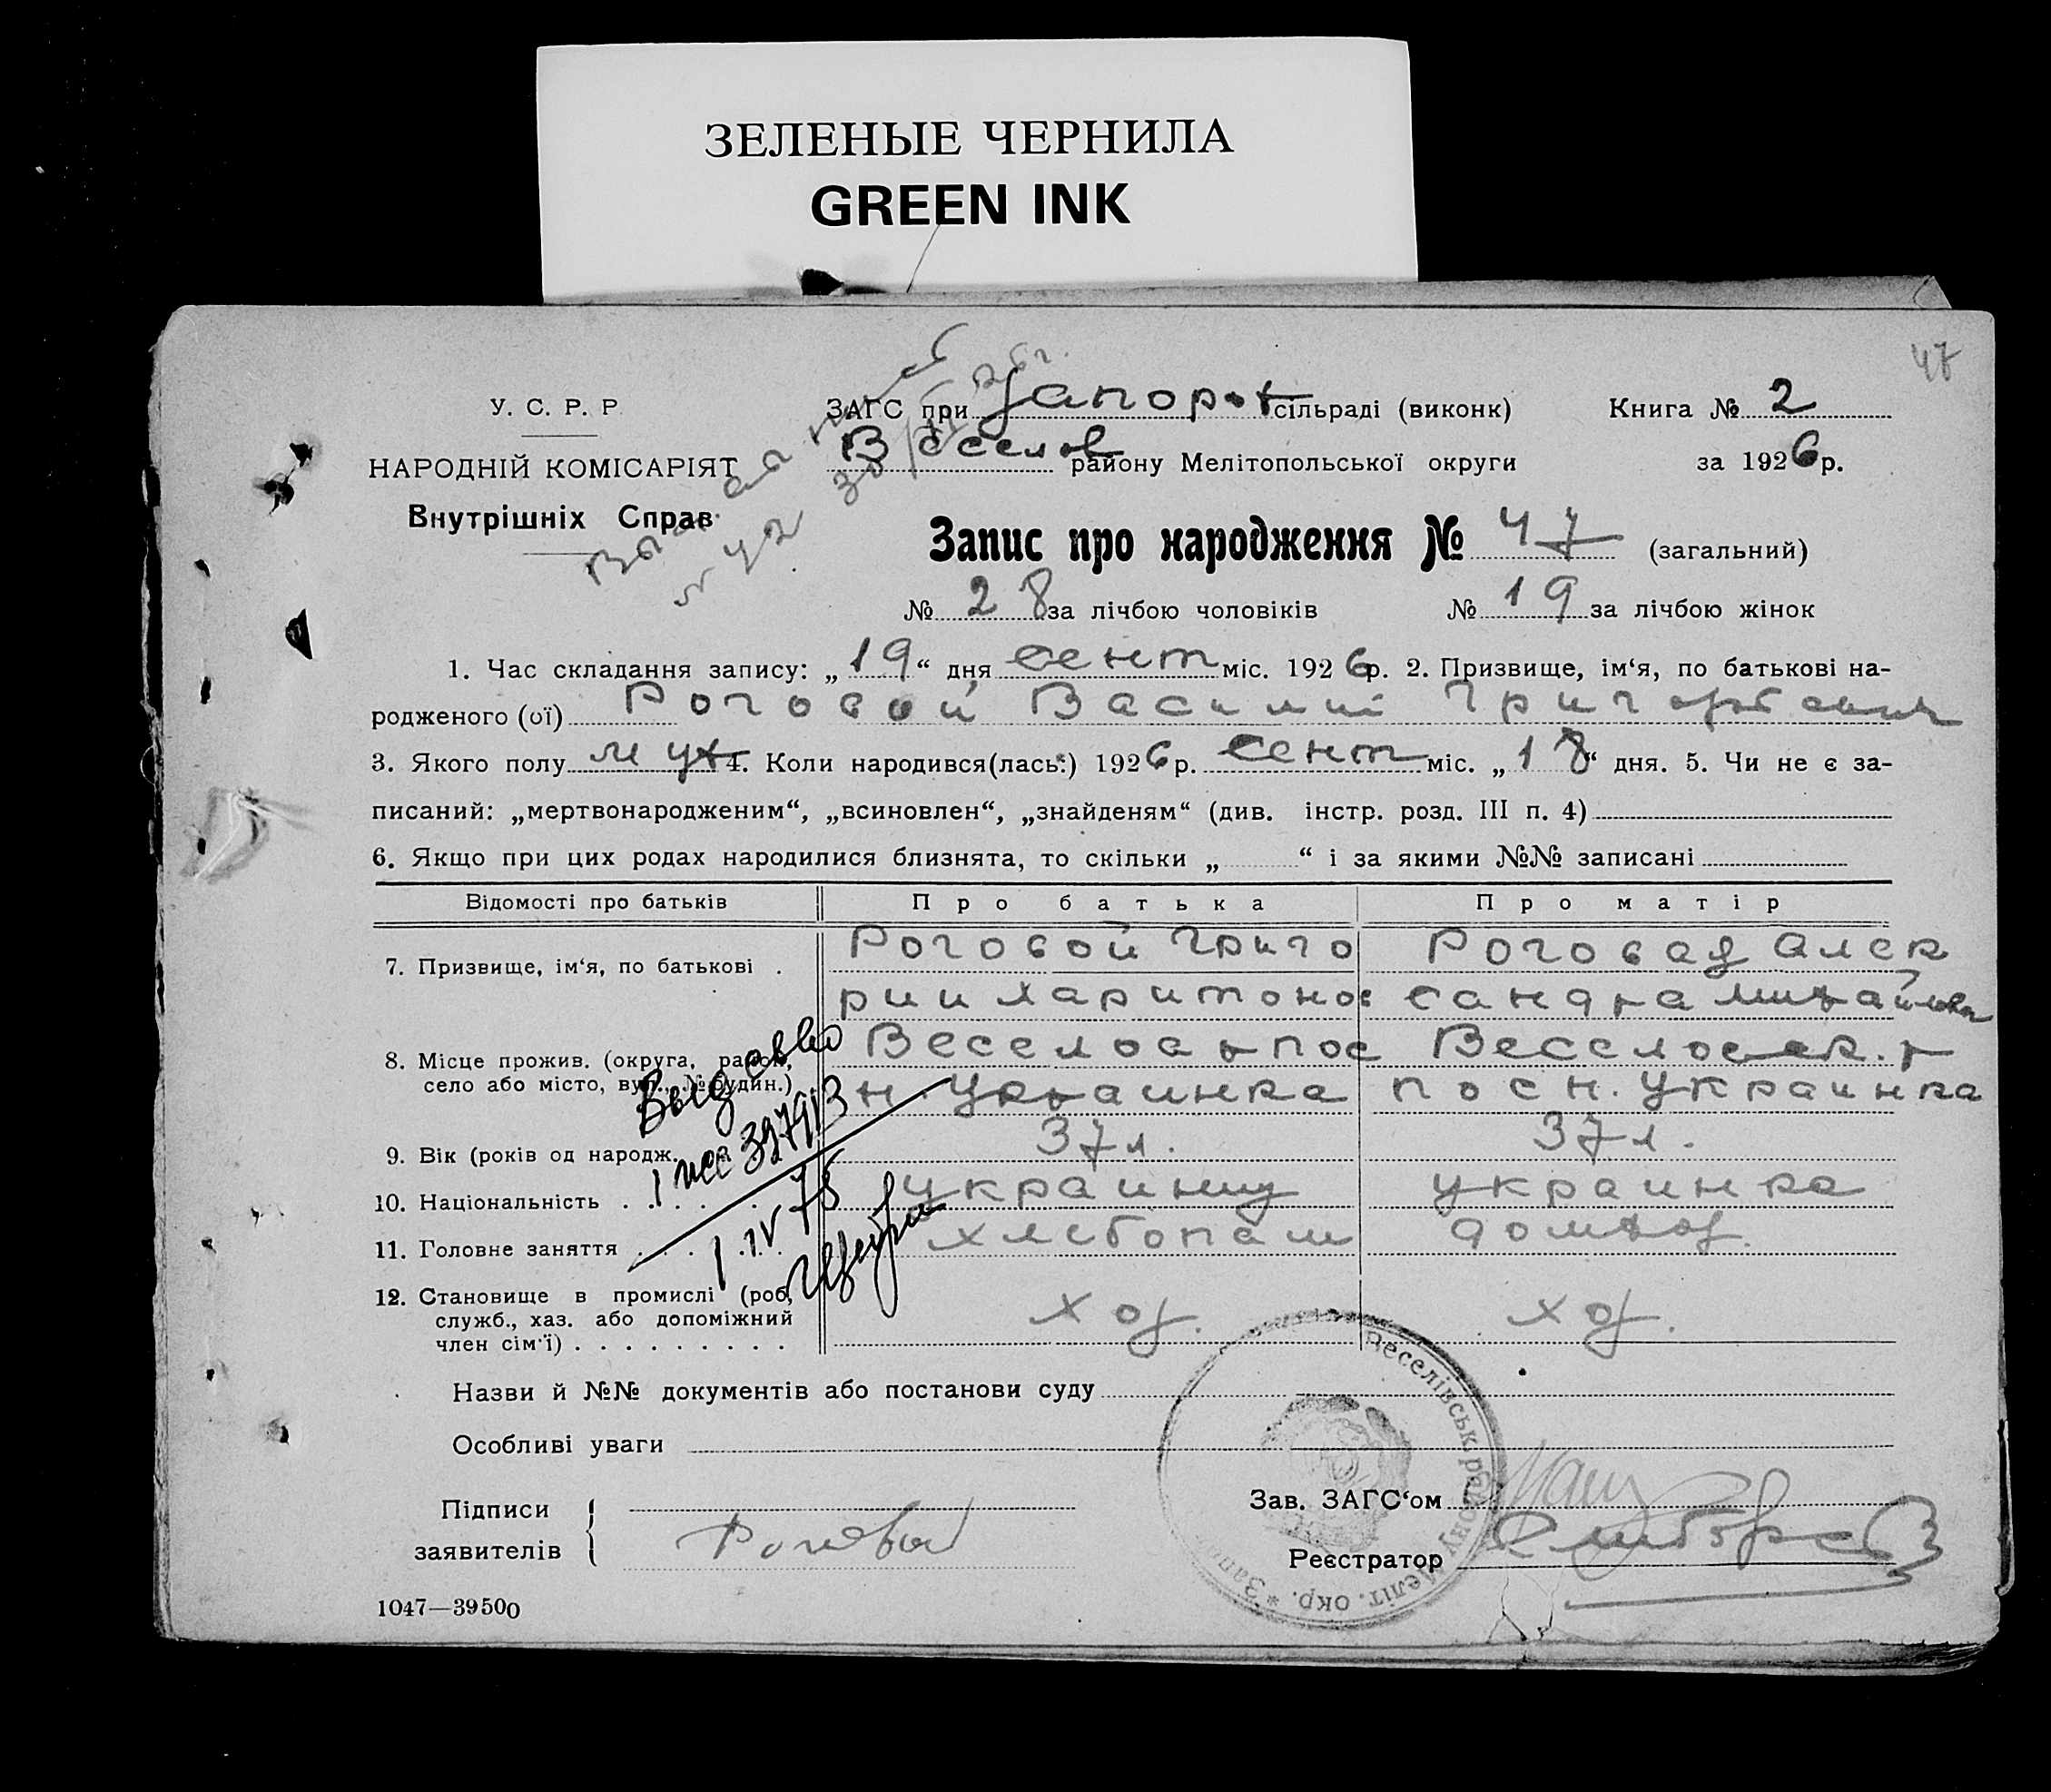 ЗЕЛЕНЫЕ ЧЕРНИЛА
GREEN INK
47
У. С. Р. Р
НАРОДНІЙ КОМІСАРІЯТ
Внутрішніх Справ
ЗАГС при Запорож сільраді (виконк) Книга № 2
Веселов району Мелітопольської округи за 1926 р.
Запис про народження № 47 (загальний)
№ 28 за лічбою чоловіків № 19 за лічбою жінок
1. Час складання запису: „19“ дня сент міс. 1926 р. 2. Призвище, ім‘я, по батькові на-
родженого (ої) Роговой Василий Григорьевич
3. Якого полу муж 4. Коли народився(лась:) 1926 р. сент міс. „18“ дня. 5. Чи не є за-
писаний: „мертвонародженим“, „всиновлен“, „знайденям“ (див. інстр. розд. III п. 4)
6. Якщо при цих родах народилися близнята, то скільки „ “ і за якими №№ записані
Відомості про батьків Про батька Про матір
7. Призвище, ім‘я, по батькові . Роговой Григо Роговая Алек
рии Харитонов сандра Михайловна
8. Місце прожив. (округа, район, село або місто, вул., № будин.)
н. Украинка пос н. Украинка
9. Вік (років од народж. 37 л. 37 л.
10. Національність украинец украинка
11. Головне заняття хлебопаш домхоз.
12. Становище в промислі (роб, служб., хаз. або допоміжний член сім‘ї) хоз. хоз.
Выд свво
1 IV 75
Назви й №№ документів або постанови суду
Особливі уваги
Підписи
заявителів Роговой
Зав. ЗАГС‘ом
Реєстратор
Веселівськ. району Меліт. окр. * Запо
1047—39500